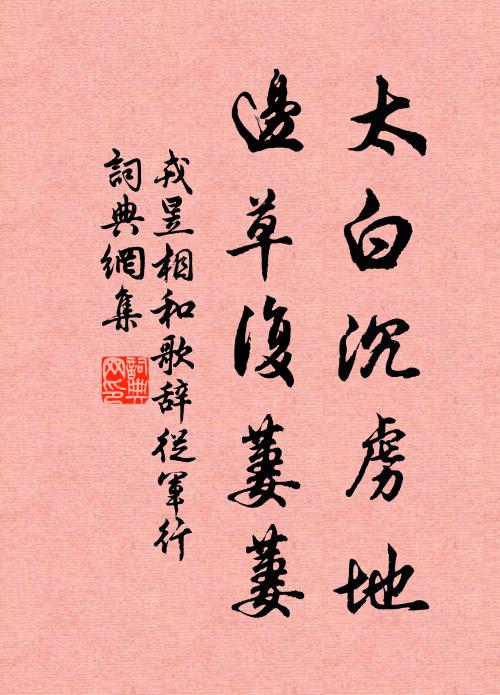 太白沉虜地
邊草復萋萋
戎昱相和歌辞從軍行
詞典網集
詞典网印